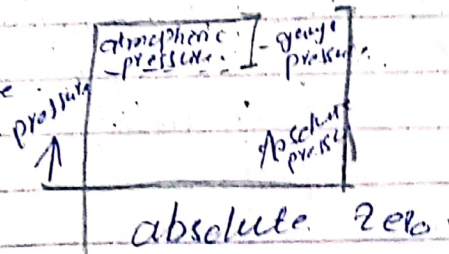 atmospheric
pressure
gauge
pressure
pressure
Absolute
press
absolute Zero